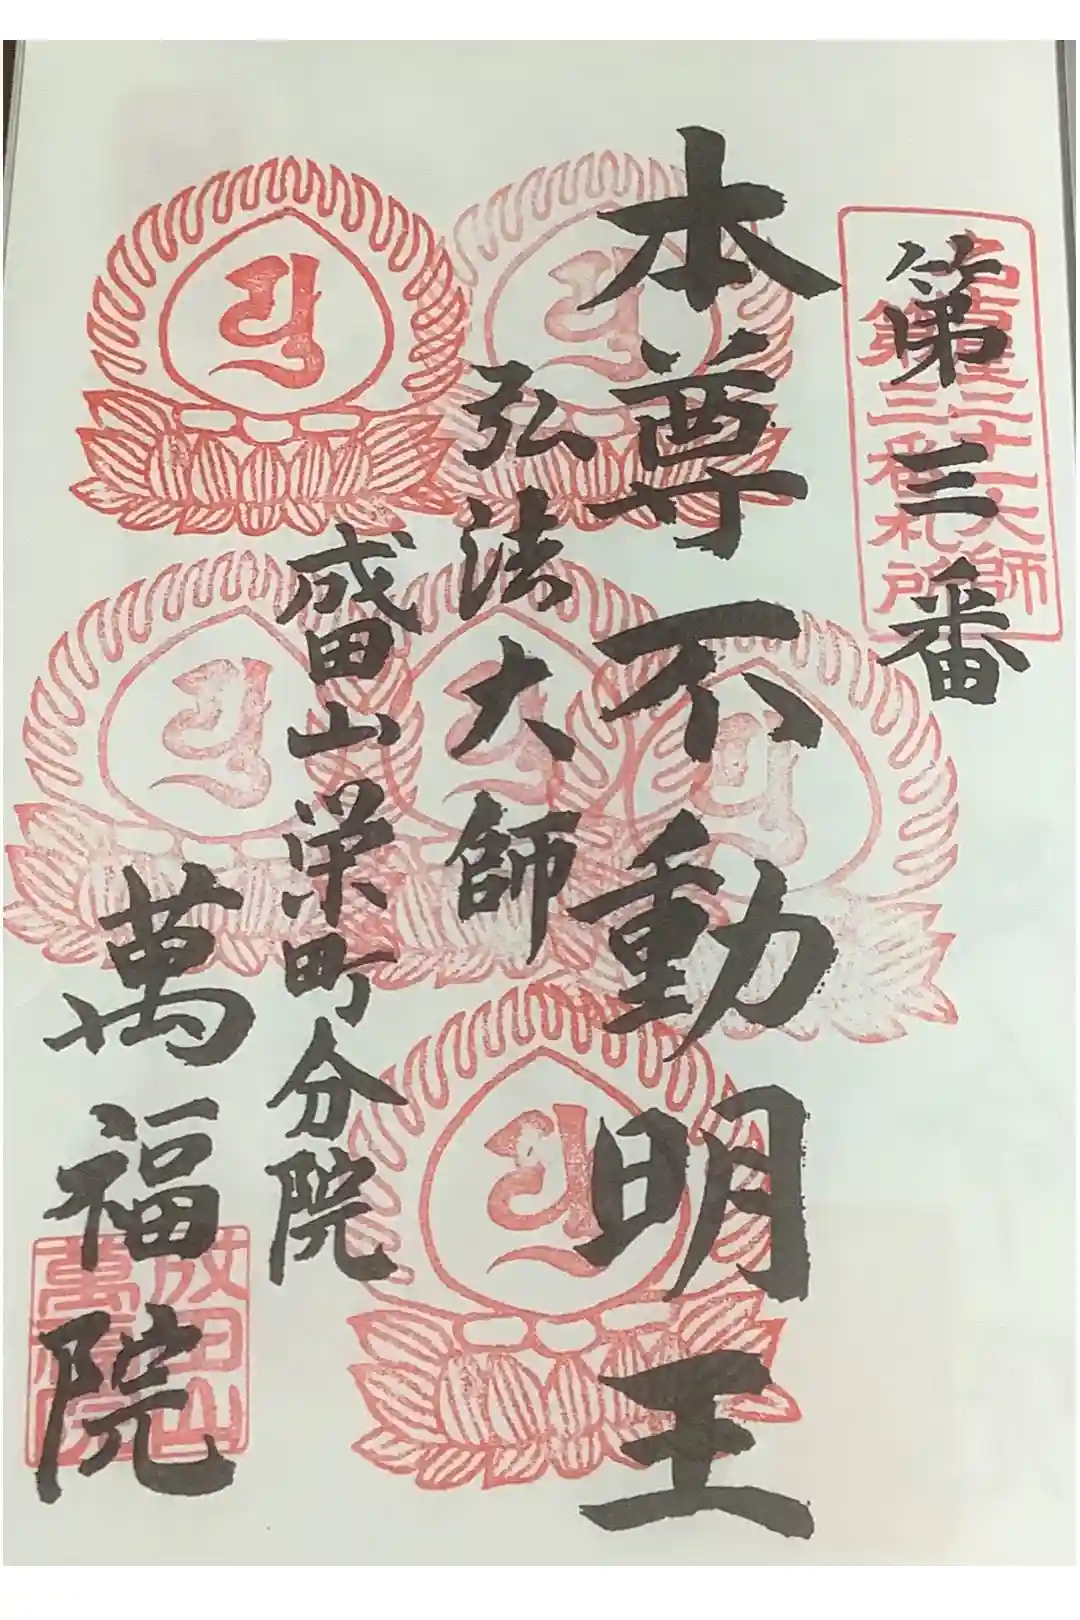 名古屋二十一大師
第三番札所
第三番
本尊不動明王
弘法大師
成田山栄町分院
萬福院
成田山
萬福院